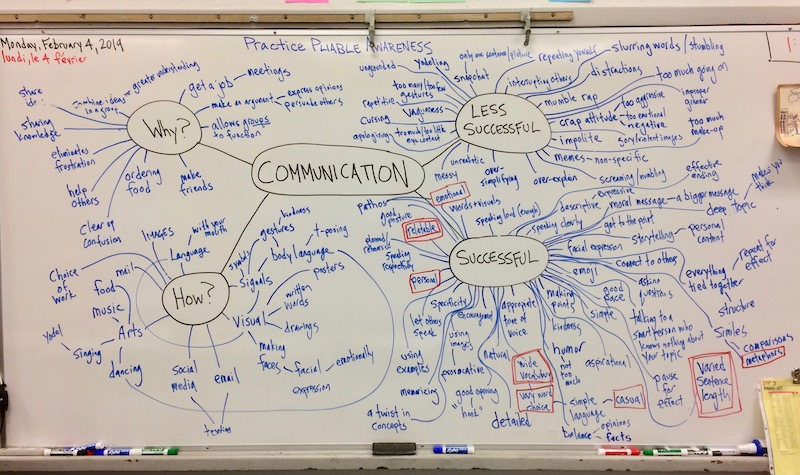 Monday, February 4, 2019
lundi, le 4 février
PRACTICE PLIABLE AWARENESS
COMMUNICATION
WHY?
share
greater understanding
get a job
meetings
make an argument
express opinions
persuade others
allows groups
to function
sharing
knowledge
eliminates
frustration
help
others
clear up
confusion
ordering
food
make
friends
HOW?
IMAGES
Language
with your
mouth
Choice
of work
mail
food
music
Arts
yodel
singing
dancing
social
media
email
Signals
symbols
gestures
kindness
body language
t-posing
posters
Visual
written
words
drawings
making
faces
facial
expression
emotionally
LESS
SUCCESSFUL
ungrounded
yodeling
only one sentence/picture
snapchat
repeating yourself
slurring words/stumbling
interrupting others
distractions
too much going on
too many/too few
gestures
repetitive
vagueness
cursing
apologizing
too much/too little
eye contact
mumble rap
too aggressive
improper
grammar
crap attitude
too emotional
negative
too much
make-up
impolite
gory/violent images
memes - non-specific
unrealistic
messy
over-
simplifying
over-explain
screaming/mumbling
SUCCESSFUL
emotional
pathos
words + visuals
good
posture
relatable
speaking loud (enough)
speaking clearly
descriptive
expressive
effective
ending
moral message - a bigger message
deep topic
get to the point
storytelling
personal
content
facial expression
connect to others
emoji
speaking
respectfully
personal
specificity
let others
speak
encouragement
using
images
using
examples
memorizing
provocative
natural
appropriate
tone of
voice
good opening
"hook"
a twist in
concepts
detailed
wide
vocabulary
vary word
choice
making
points
kindness
humor
not
too
much
simple
language
casual
balance
opinions
facts
good
pace
simple
aspirational
asking
questions
talking to a
smart person who
knows nothing about
your topic
pause
for
effect
everything
tied together
repeat for
effect
structure
similes
comparisons
metaphors
Varied
Sentence
length